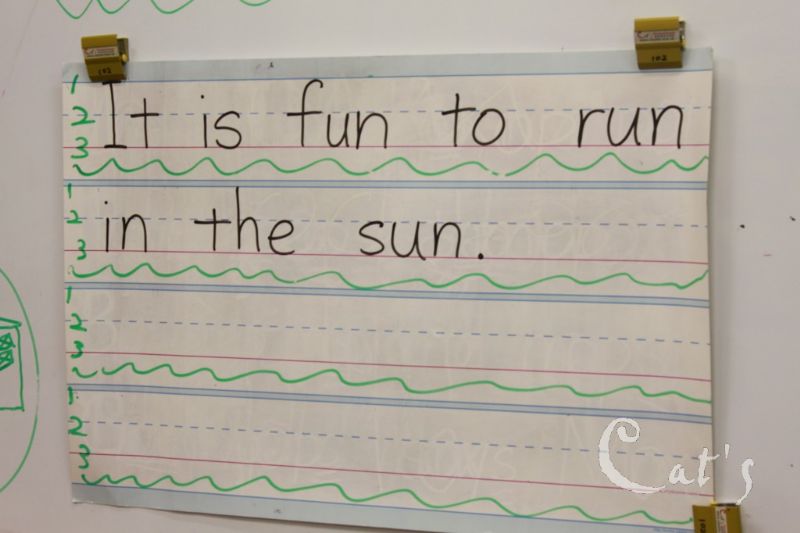 102
102
1 It is fun to run
2
3
1 in the sun.
2
3
1
2
3
1
2
3
Cat's
102